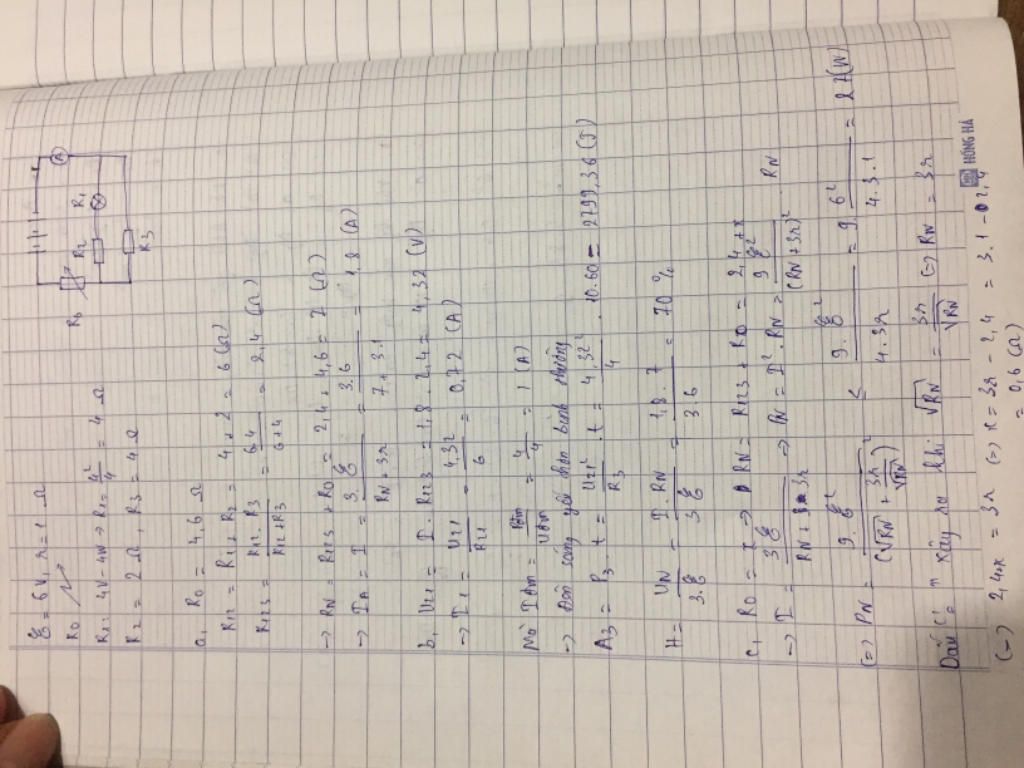 R0 R2 R1 A
R3
ℰ = 6V, r = 1 Ω
R0
R1 = 4V - 4W → R1 = 4²/4 = 4 Ω
R2 = 2 Ω, R3 = 4 Ω
a, R0 = 4,6 Ω
R12 = R1 + R2 = 4 + 2 = 6 (Ω)
R123 = R12 . R3 / R12 + R3 = 6.4 / 6+4 = 2,4 (Ω)
→ RN = R123 + R0 = 2,4 + 4,6 = 7 (Ω)
→ IA = I = 3.ℰ / RN + 3r = 3.6 / 7 + 3.1 = 1,8 (A)
b, U21 = I . R123 = 1,8 . 2,4 = 4,32 (V)
→ I1 = U21 / R21 = 4,32 / 6 = 0,72 (A)
Mà Iđm = Pđm / Uđm = 4/4 = 1 (A)
→ Đèn sáng yếu hơn bình thường
A3 = P3 . t = U21² / R3 . t = 4,32² / 4 . 10.60 = 2799,36 (J)
H = UN / 3.ℰ = I.RN / 3.ℰ = 1,8 . 7 / 3.6 = 70 %
c, R0 = x → RN = R123 + R0 = 2,4 + x
→ I = 3ℰ / RN + 3r → PN = I² . RN = 9ℰ² / (RN + 3r)² . RN
(=) PN = 9.ℰ² / (√RN + 3r/√RN)² ≤ 9.ℰ² / 4.3r = 9.6² / 4.3.1 = 27 (W)
Dấu "=" xảy ra khi √RN = 3r / √RN (=) RN = 3r
(=) 2,4+x = 3r (=) x = 3r - 2,4 = 3.1 - 2,4
= 0,6 (Ω)
HỒNG HÀ